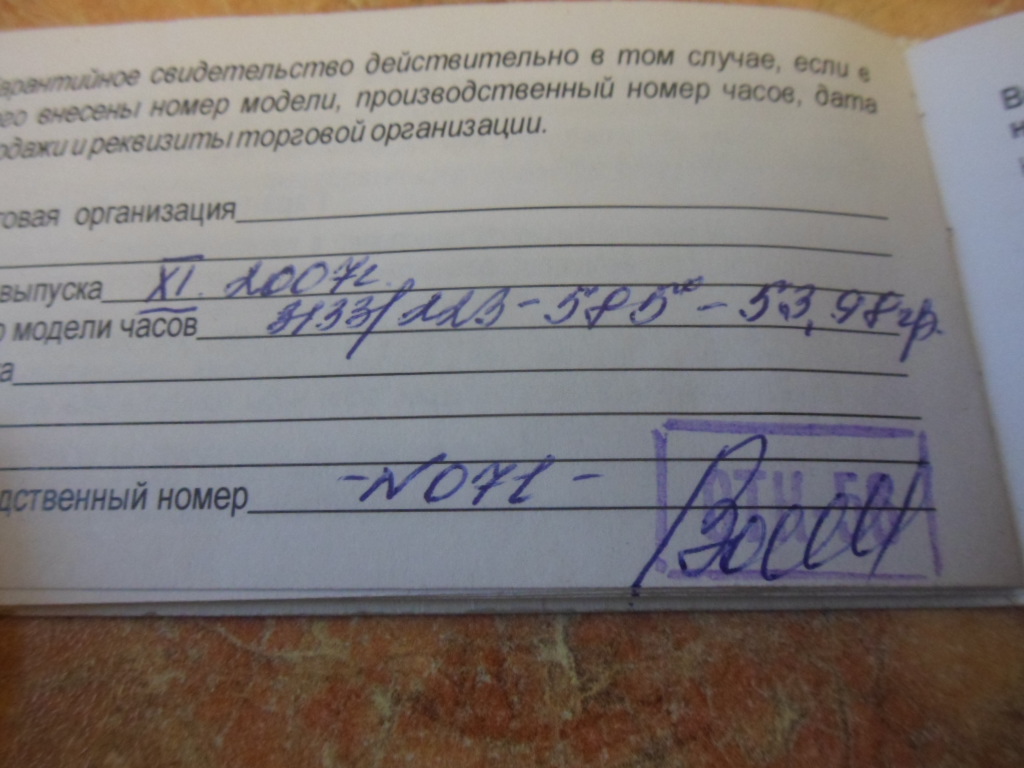 арантийное свидетельство действительно в том случае, если в
ого внесены номер модели, производственный номер часов, дата
одажи и реквизиты торговой организации.
говая организация
выпуска XI. 2007г.
р модели часов 3133/223 - 585° - 53,98гр.
ка
дственный номер - N 071 -
ОТК 50
В
н